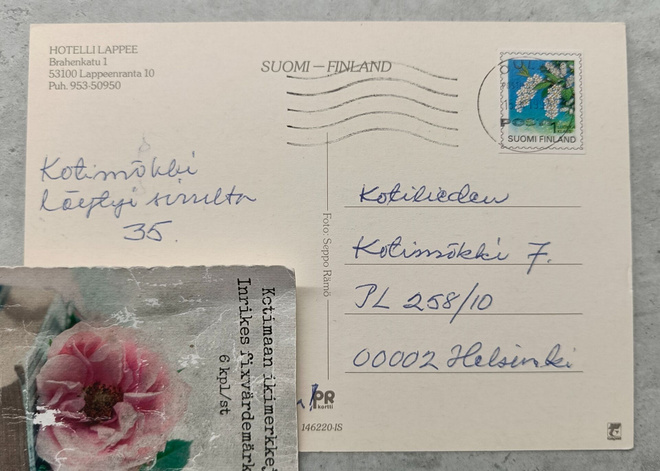 HOTELLI LAPPEE
Brahenkatu 1
53100 Lappeenranta 10
Puh. 953-50950
SUOMI – FINLAND
OULU
POSTI
1
SUOMI FINLAND
Kotimökki
löytyi sivulta
35.
Foto: Seppo Rämö
Kotilieden
Kotimökki 7.
PL 258/10
00002 Helsinki
PR
kortti
146220-IS
Kotimaan ikimerkke
Inrikes fixvärdemärk
6 kpl/st